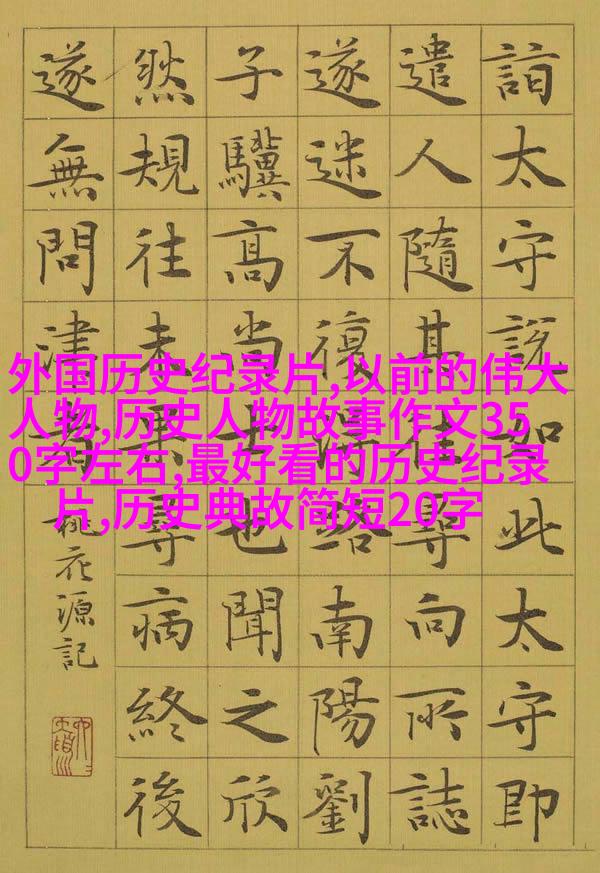 詣太守說如此太守即
遣人隨其往尋向所誌
遂迷不復得路南陽劉
子驥高尚士也聞之欣
然規往未果尋病終後
遂無問津者
桃花源記
外国历史纪录片,以前的伟大
人物,历史人物故事作文35
0字左右,最好看的历史纪录
片,历史典故简短20字